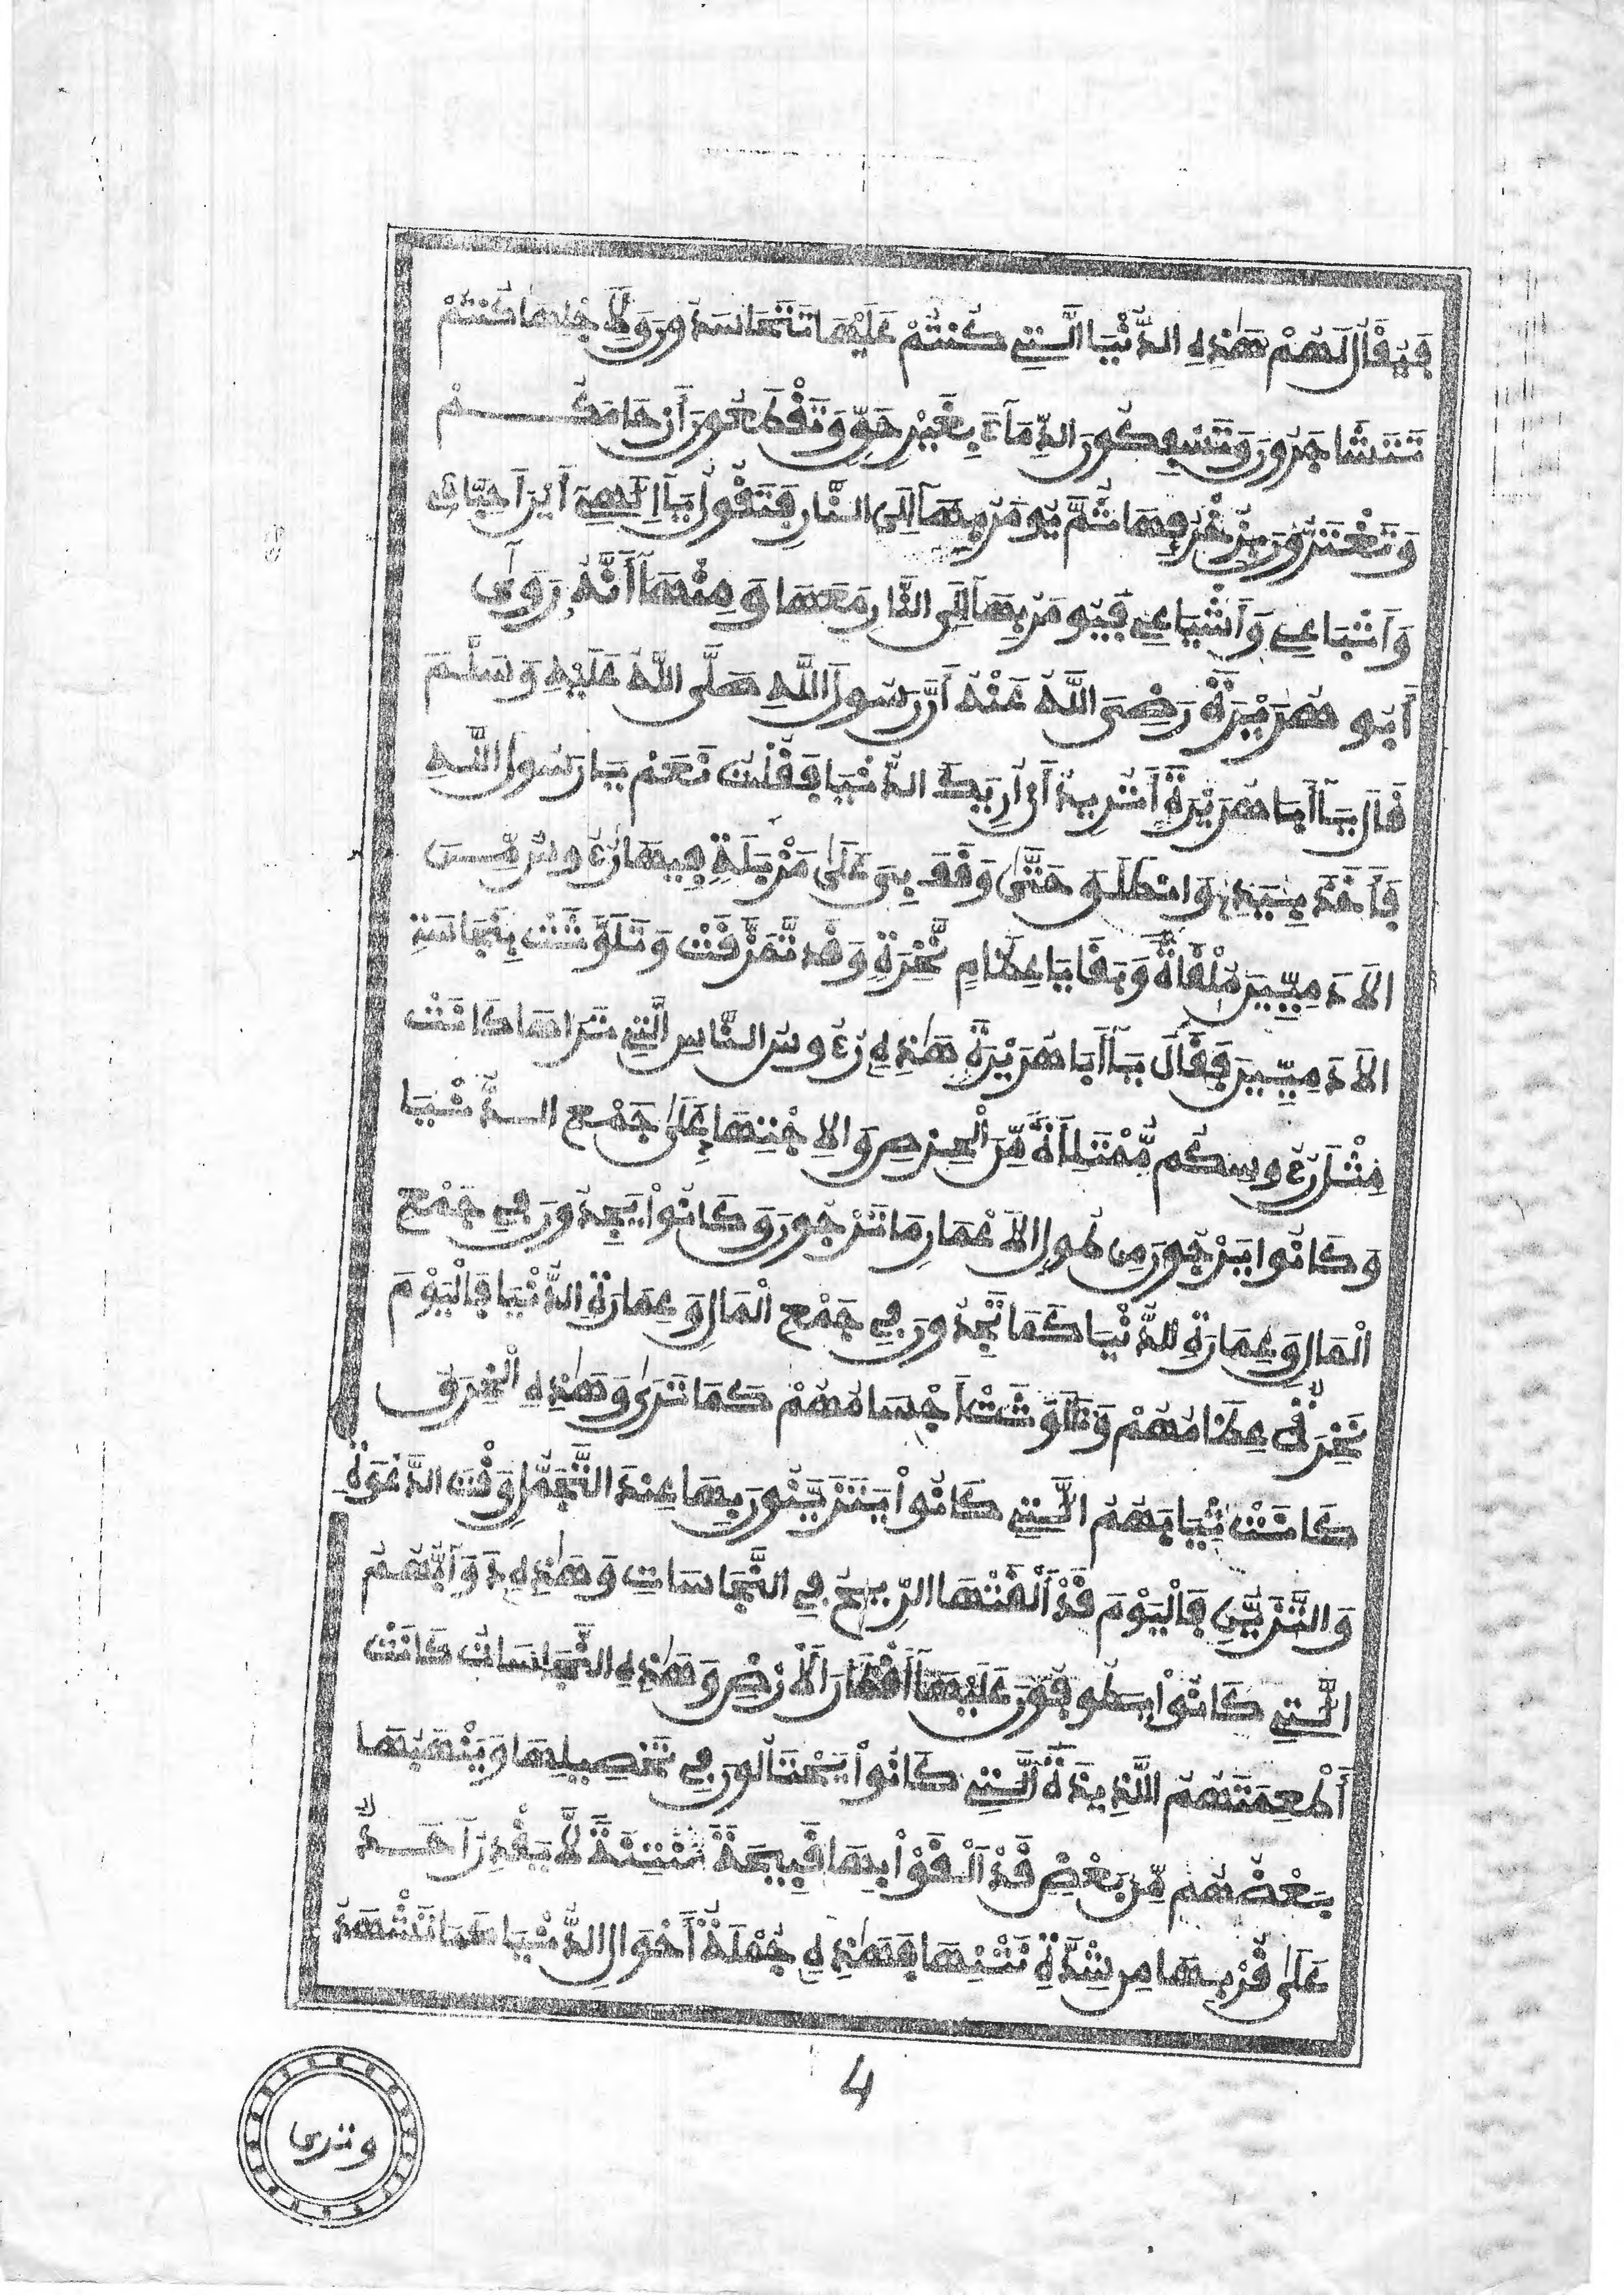 فَيُقَالُ لَهُمْ هَٰذِهِ الدُّنْيَا الَّتِي كُنْتُمْ عَلَيْهَا تَتَحَاسَدُونَ وَلِأَجْلِهَا كُنْتُمْ
تَتَشَاجَرُونَ وَتَسْفِكُونَ الدِّمَآءَ بِغَيْرِ حَقٍّ وَتَقْطَعُونَ أَرْحَامَكُمْ
وَتَغْتَرُّونَ بِزُخْرُفِهَا ثُمَّ يُومَرُ بِهَآ إِلَى النَّارِ فَتَقُولُ يَآ إِلَٰهِي أَيْنَ أَحِبَّائِي
وَأَتْبَاعِي وَأَشْيَاعِي فَيُومَرُ بِهِمْ إِلَى النَّارِ مَعَهَا وَمِنْهَآ أَنَّهُ رَوَىٰ
أَبُو هُرَيْرَةَ رَضِيَ اللَّهُ عَنْهُ أَنَّ رَسُولَ اللَّهِ صَلَّى اللَّهُ عَلَيْهِ وَسَلَّمَ
قَالَ يَآ أَبَا هُرَيْرَةَ أَتُرِيدُ أَنْ أُرِيَكَ الدُّنْيَا فَقُلْتُ نَعَمْ يَا رَسُولَ اللَّهِ
فَأَخَذَ بِيَدِي وَانْطَلَقَ حَتَّىٰ وَقَفَ بِي عَلَىٰ مَزْبَلَةٍ فِيهَا رُءُوسُ
الْأَدَمِيِّينَ مُلْقَاةٌ وَبَقَايَا عِظَامٍ نَّخِرَةٍ وَقَد تَّمَزَّقَتْ وَتَلَوَّثَتْ بِنَجَاسَةِ
الْأَدَمِيِّينَ فَقَالَ يَآ أَبَا هُرَيْرَةَ هَٰذِهِ رُءُوسُ النَّاسِ الَّتِي تَرَاهَا كَانَتْ
مِثْلَ رُءُوسِكُم مُّمْتَلِأَةً مِّنَ الْحِرْصِ وَالِاجْتِهَادِ عَلَىٰ جَمْعِ الدُّنْيَا
وَكَانُوا يَرْجُونَ مِن طُولِ الْأَعْمَارِ مَا تَرْجُونَ وَكَانُواْ يَجِدُّونَ فِي جَمْعِ
الْمَالِ وَعِمَارَةِ الدُّنْيَا كَمَا تَجِدُّونَ فِي جَمْعِ الْمَالِ وَعِمَارَةِ الدُّنْيَا فَالْيَوْمَ
نَخِرَتْ عِظَامُهُمْ وَتَلَوَّثَتْ أَجْسَامُهُمْ كَمَا تَرَىٰ وَهَٰذِهِ الْخِرَقُ
كَانَتْ ثِيَابَهُمُ الَّتِي كَانُواْ يَتَزَيَّنُونَ بِهَا عِنْدَ التَّجَمُّلِ وَقْتَ الدَّعْوَةِ
وَالتَّزَيُّنِ فَالْيَوْمَ قَدْ أَلْقَتْهَا الرِّيحُ فِي النَّجَاسَاتِ وَهَٰذِهِ دَوَآبُّهُمُ
الَّتِي كَانُواْ يَطُوفُونَ عَلَيْهَآ أَقْطَارَ الْأَرْضِ وَهَٰذِهِ النَّجَاسَاتُ كَانَتْ
أَطْعِمَتَهُمُ اللَّذِيذَةَ الَّتِي كَانُواْ يَحْتَالُونَ فِي تَحْصِيلِهَا وَيَنْهَبُهَا
بَعْضُهُم مِّن بَعْضٍ قَدْ أَلْقَوْاْ بِهَا قَبِيحَةً مُّنْتِنَةً لَّا يَقْدِرُ أَحَدٌ
عَلَىٰ قُرْبِهَا مِن شِدَّةِ نَتْنِهَا فَهَٰذِهِ جُمْلَةُ أَحْوَالِ الدُّنْيَا كَمَا تَشْهَدُ
4